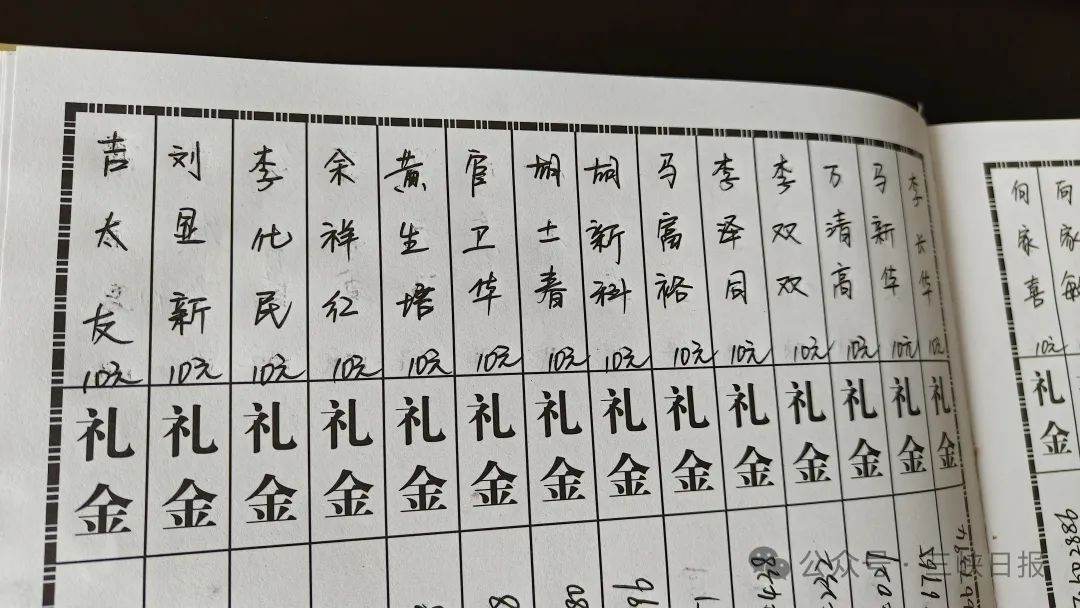 吉太友 10元
刘显新 10元
李化民 10元
余祥红 10元
黄生培 10元
官卫华 10元
胡士春 10元
胡新科 10元
马富裕 10元
李泽同 10元
李双双 10元
万清高 10元
马新华 10元
李长华 10元
礼金 礼金 礼金 礼金 礼金 礼金 礼金 礼金 礼金 礼金 礼金 礼金 礼金 礼金
向家喜 10元
向家敏
礼金
公众号·三峡日报